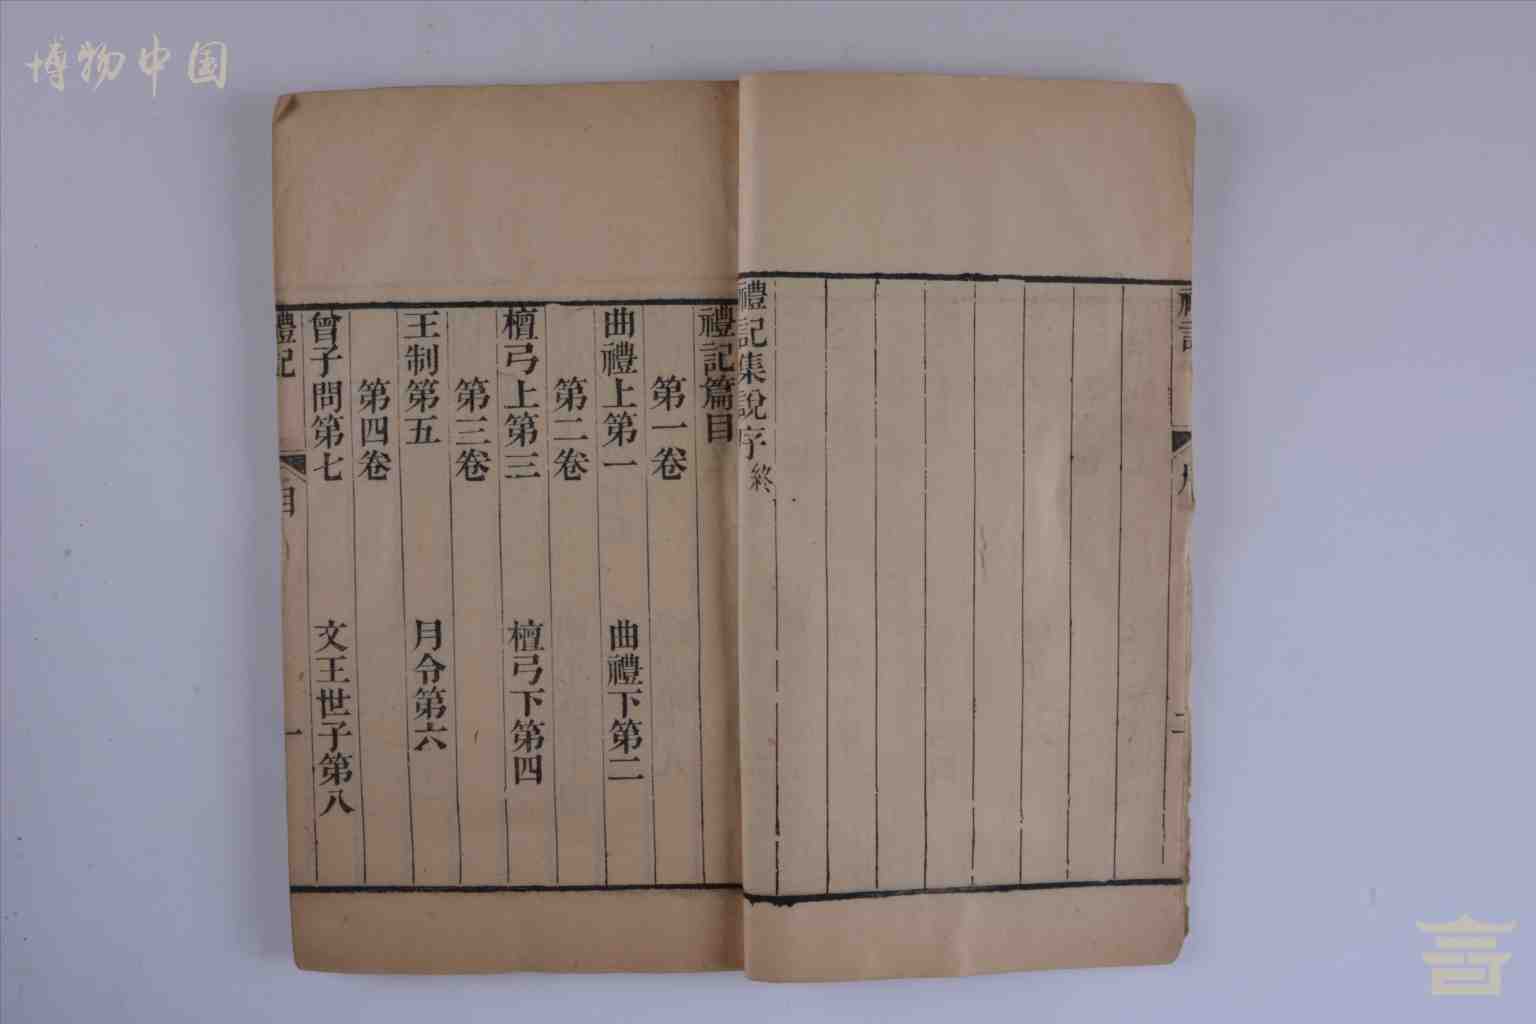 博物中国
禮記
禮記集說序終
禮記篇目
第一卷
曲禮上第一 曲禮下第二
第二卷
檀弓上第三 檀弓下第四
第三卷
王制第五 月令第六
第四卷
曾子問第七 文王世子第八
禮記 目 一